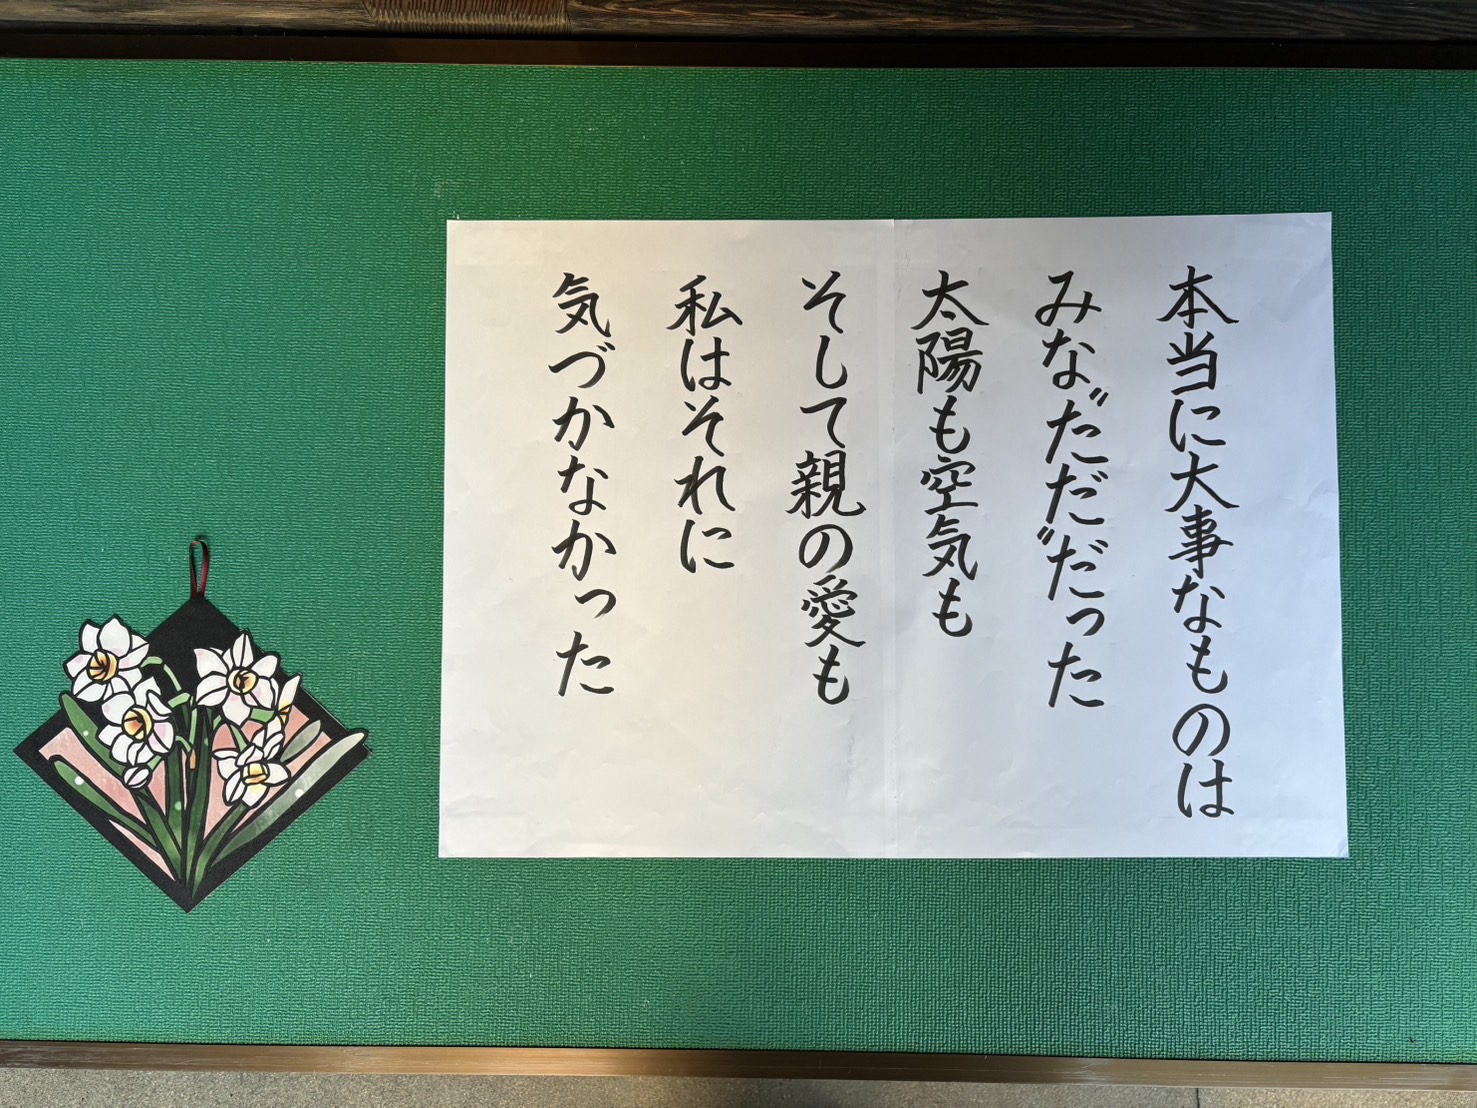 本当に大事なものは
みな〝ただ〟だった
太陽も空気も
そして親の愛も
私はそれに
気づかなかった